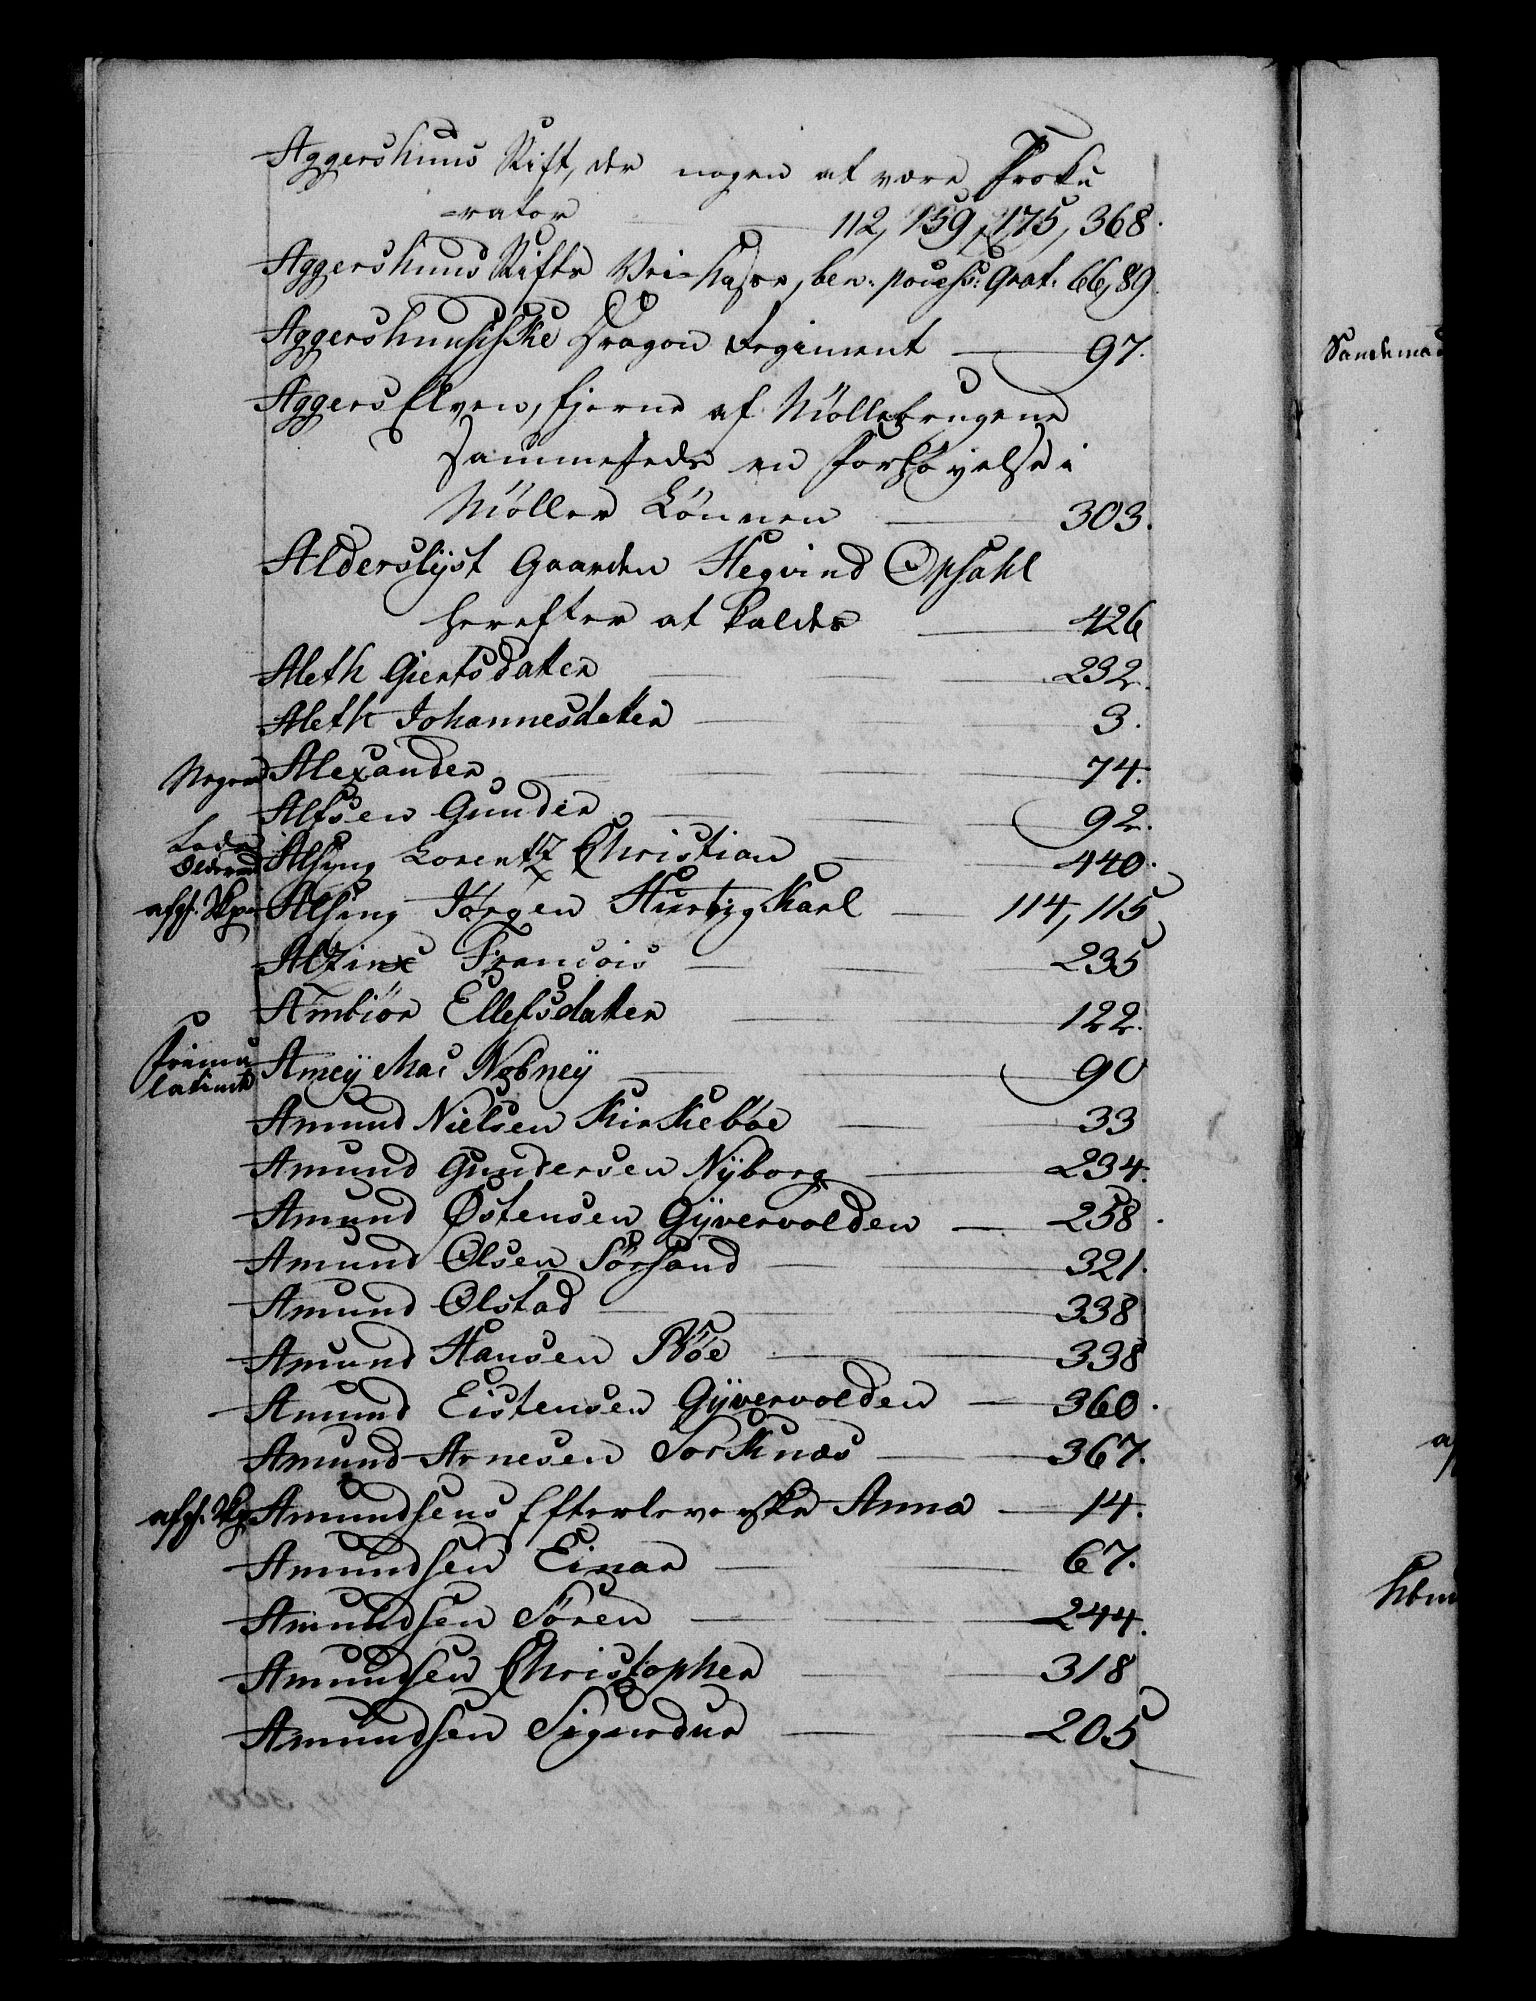 Aggershuus Stift, der nogen at være Proku
=rator 112, 159, 175, 368.
Aggershuus Stifts Vei-Casse, ben: process: grat: 66, 89.
Aggershuusiske Dragon Regiment 97.
Aggers Elven, Ejerne af Møllebrugene
sammesteds en Forhøyelse i
Møller Lønnen 303.
Alderslyst Gaarden Hegvind Opsahl
herefter at kaldes 426
Aleth Giertsdatter 232.
Aleth Johannesdatter 3.
Negeren Alexander 74.
Alfsen Gunder 92.
Lods
Olderm: Alsing Lorentz Christian 440.
afg: Skp: Alsing Jørgen Hertzig Karl 114, 115
Altzinx Francois 235
Ambiør Ellefsdatter 122.
Amey Mac Nobney 90
Amund Nielsen Kirkebøe 33
Amund Gundersen Nÿborg 234.
Amund Østensen Gÿvervolden 258.
Amund Olsen Sørsand 321.
Amund Olstad 338
Amund Hansen Bøe 338
Amund Eistensen Gÿvervolden 360.
Amund Arnesen Torknæs 367.
afg: Skp: Amundsens Efterleverske Anna 14.
Amundsen Einar 67.
Amundsen Søren 244.
Amundsen Christopher 318
Amundsen Sigurdur 205